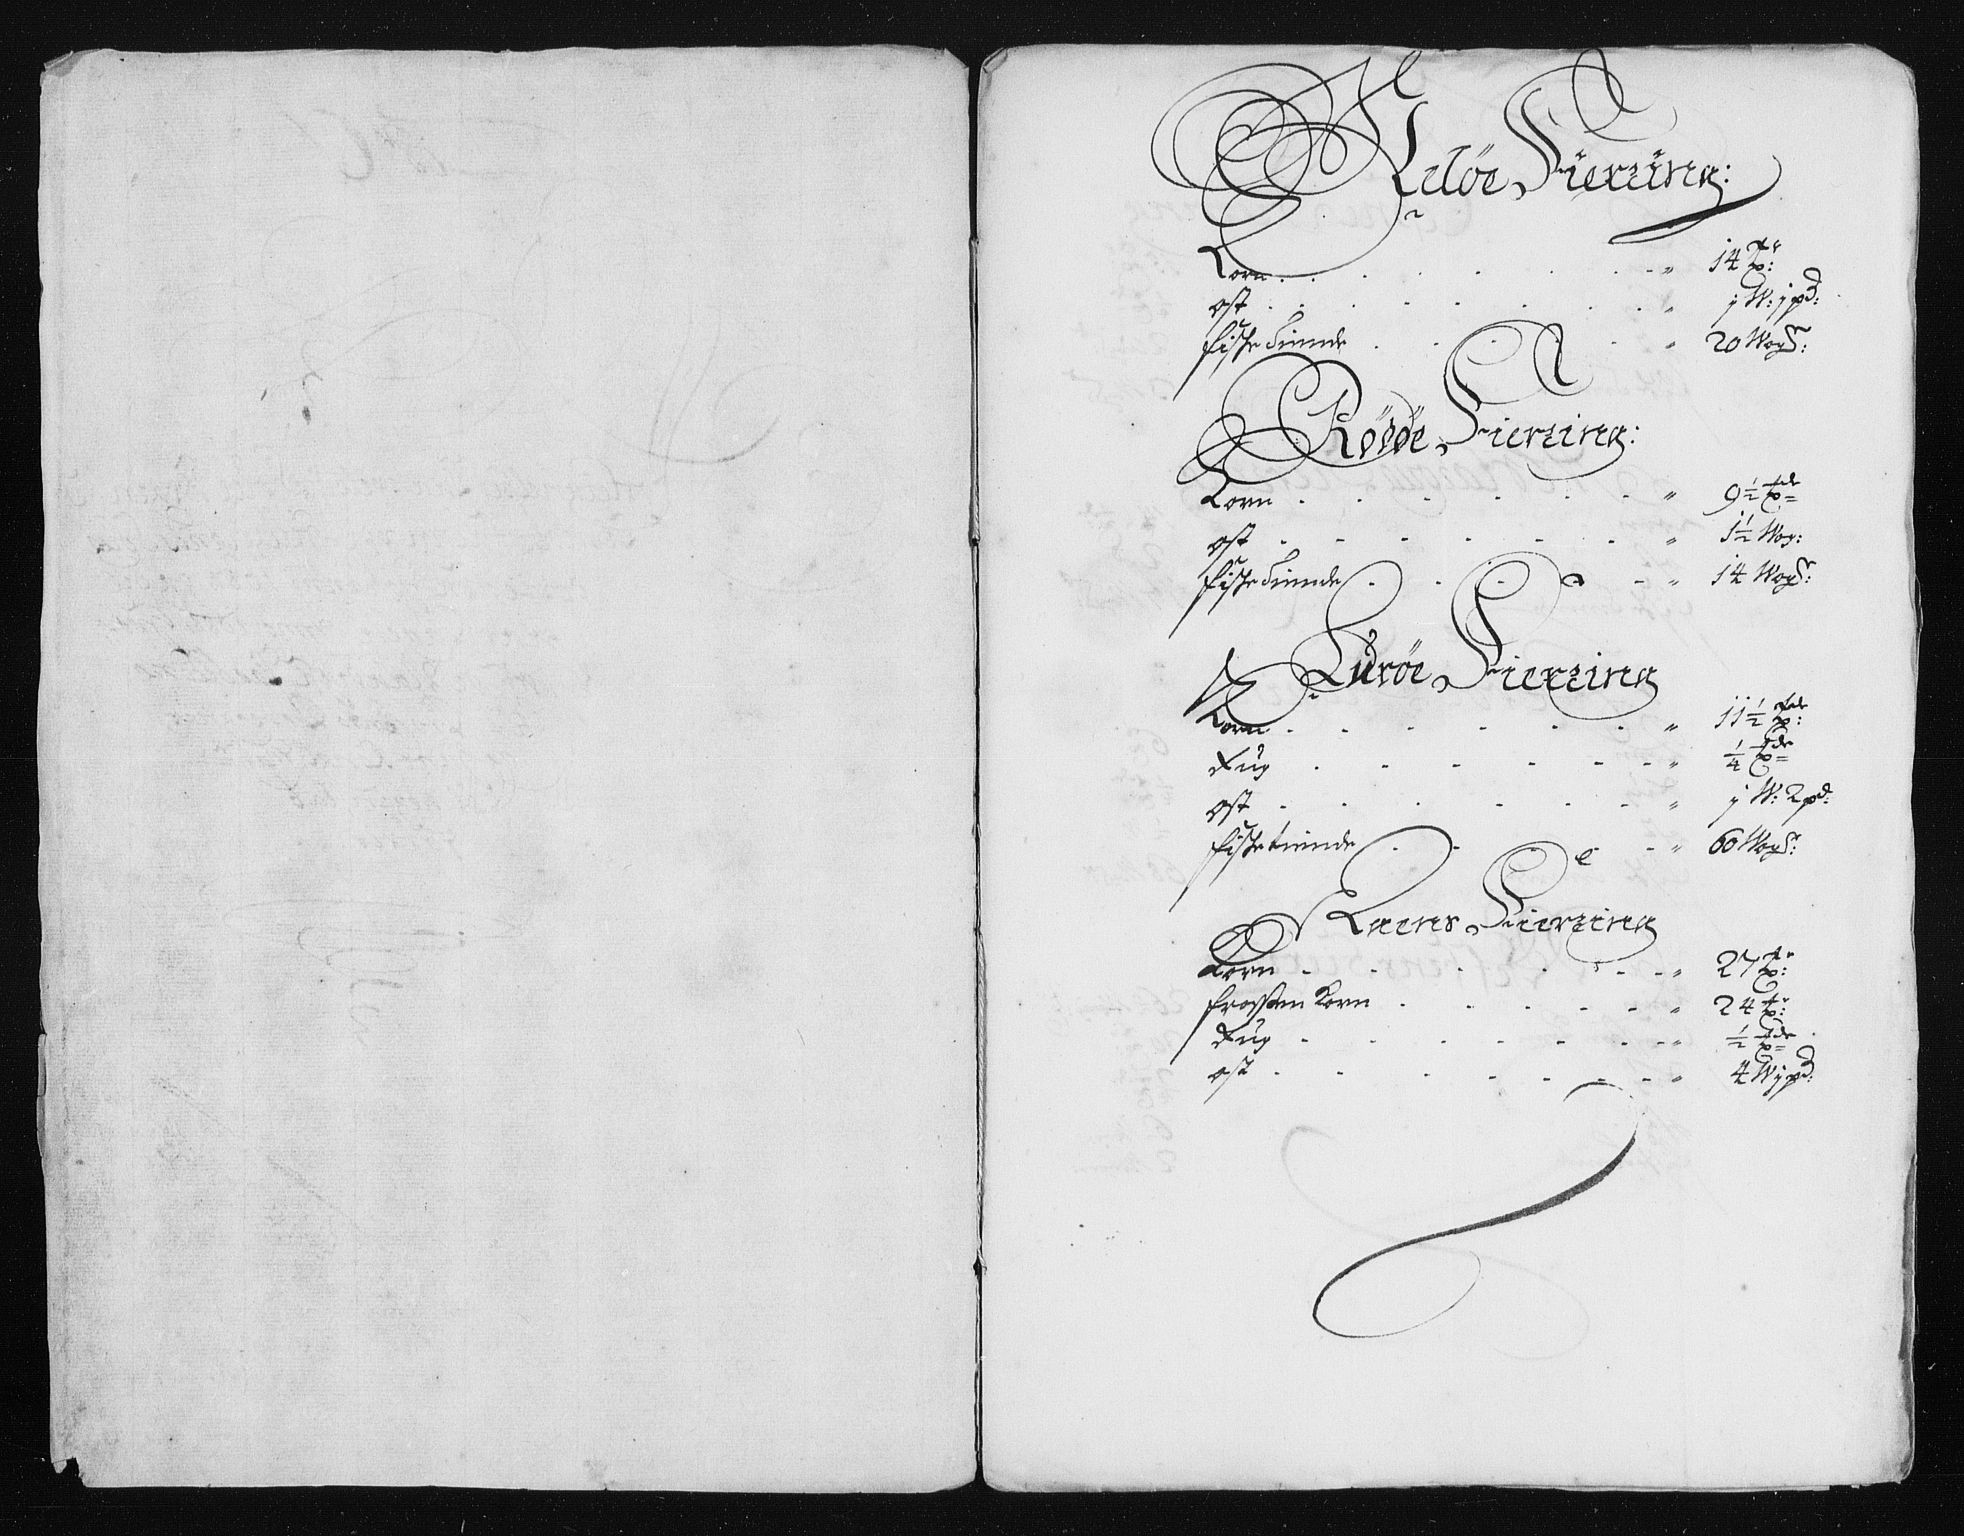 Meløe Fierzing:
Korn . . . . . . . . 14 tr:
ost . . . . . . . . j W: j pd:
fiske tiende . . . . . 20 Wogr:
Rödöe Fierzing:
Korn . . . . . . . 9½ tde
ost . . . . . . . 1½ Wog:
fiske tiende . . . . 14 Wogr:
Luröe Fierzing
Korn . . . . . . . 11½ tde:
Rug . . . . . . . ¼ tde
ost . . . . . . . j W: 2 pd:
fiske tiende . . . . 60 Wogr:
Raens Fierzing
Korn . . . . . . . 27 tr:
frossen Korn . . . . . 24 tr:
Rug . . . . . . . ½ tde
ost . . . . . . . 4 W j pd: